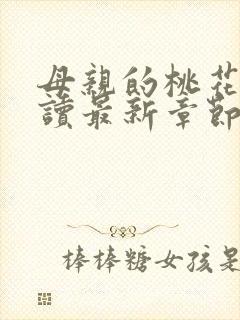 母親的桃花
讀最新章節
棒棒糖女孩是